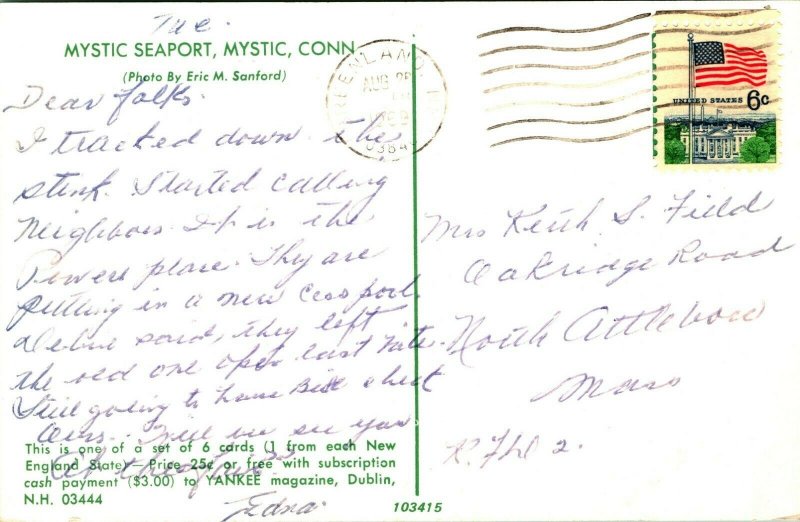 Tue.
MYSTIC SEAPORT, MYSTIC, CONN.
(Photo By Eric M. Sanford)
Dear folks.
I tracked down the
stink. Started calling
neighbors. It is the
Powers place. They are
putting in a new cess pool.
said, they left
the old one open last nite.
Still going to have Bill check
ours. Will we see you
At the
Edna.
This is one of a set of 6 cards (1 from each New
England State)—Price 25¢ or free with subscription
cash payment ($3.00) to YANKEE magazine, Dublin,
N.H. 03444
103415
GREENLAND, N
AUG
1969
03840
UNITED STATES 6c
Mrs Keith S. Field
Oakridge Road
North Attleboro
Mass
R.F.D 2.